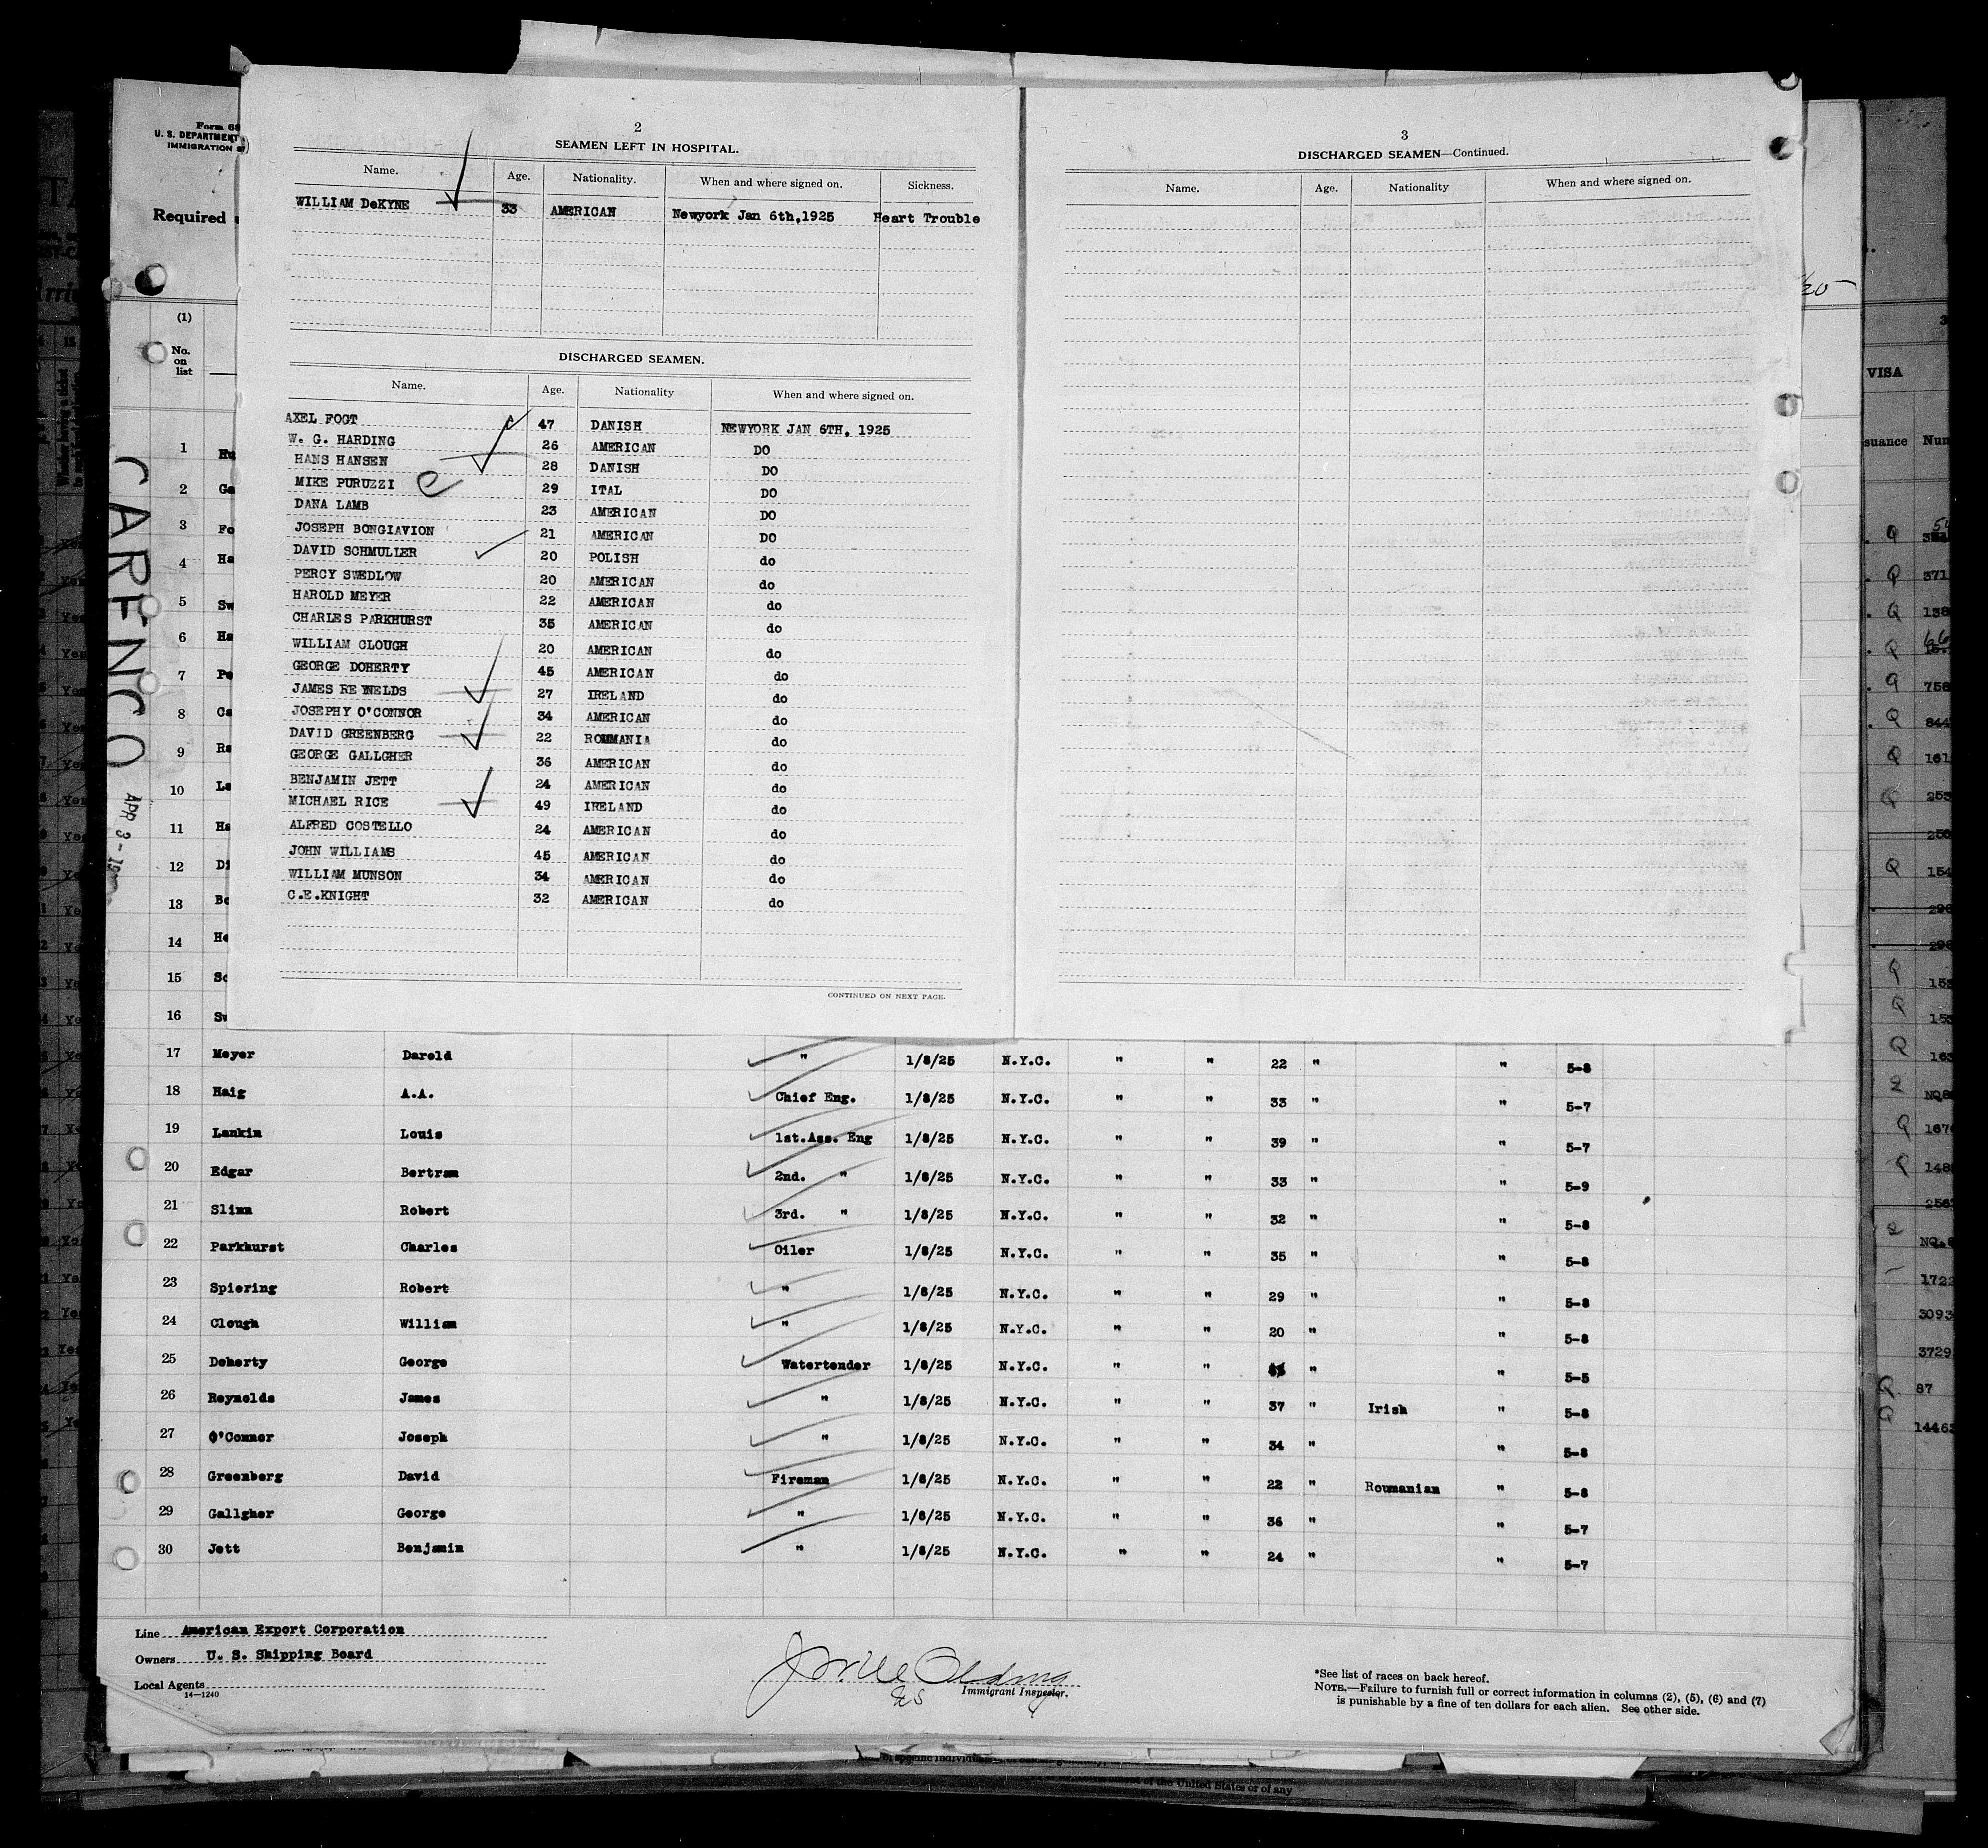 Form 68
U. S. DEPARTMENT
IMMIGRATION S
Required
(1)
No.
on
list
CARENCO
APR 3 - 19
2
SEAMEN LEFT IN HOSPITAL.
Name. Age. Nationality. When and where signed on. Sickness.
WILLIAM DeKYNE 33 AMERICAN Newyork Jan 6th,1925 Heart Trouble
DISCHARGED SEAMEN.
Name. Age. Nationality When and where signed on.
AXEL FOGT 47 DANISH NEWYORK JAN 6TH, 1925
W. G. HARDING 26 AMERICAN DO
HANS HANSEN 28 DANISH DO
MIKE PURUZZI 29 ITAL DO
DANA LAMB 23 AMERICAN DO
JOSEPH BONGIAVION 21 AMERICAN DO
DAVID SCHMULLER 20 POLISH do
PERCY SWEDLOW 20 AMERICAN do
HAROLD MEYER 22 AMERICAN do
CHARLES PARKHURST 35 AMERICAN do
WILLIAM CLOUGH 20 AMERICAN do
GEORGE DOHERTY 45 AMERICAN do
JAMES REYNELDS 27 IRELAND do
JOSEPHY O'CONNOR 34 AMERICAN do
DAVID GREENBERG 22 ROUMANIA do
GEORGE GALLGHER 36 AMERICAN do
BENJAMIN JETT 24 AMERICAN do
MICHAEL RICE 49 IRELAND do
ALFRED COSTELLO 24 AMERICAN do
JOHN WILLIAMS 45 AMERICAN do
WILLIAM MUNSON 34 AMERICAN do
C.E.KNIGHT 32 AMERICAN do
CONTINUED ON NEXT PAGE.
3
DISCHARGED SEAMEN—Continued.
Name. Age. Nationality When and where signed on.
VISA
suance Num
1 Hu
2 Ga
3 Fo
4 Ha
5 Sw
6 Ha
7 Pe
8 Ca
9 Ra
10 La
11 Ha
12 Di
13 Bo
14 He
15 Sc
16 Sw
17 Meyer Darold " 1/8/25 N.Y.C. " " 22 " " 5-8
18 Haig A.A. Chief Eng. 1/8/25 N.Y.C. " " 33 " " 5-7
19 Lankin Louis 1st.Ass. Eng 1/8/25 N.Y.C. " " 39 " " 5-7
20 Edgar Bertram 2nd. " 1/8/25 N.Y.C. " " 33 " " 5-9
21 Slimm Robert 3rd. " 1/8/25 N.Y.C. " " 32 " " 5-8
22 Parkhurst Charles Oiler 1/8/25 N.Y.C. " " 35 " " 5-8
23 Spiering Robert " 1/8/25 N.Y.C. " " 29 " " 5-8
24 Clough William " 1/8/25 N.Y.C. " " 20 " " 5-8
25 Doherty George Watertender 1/8/25 N.Y.C. " " " " 5-5
26 Reynolds James " 1/8/25 N.Y.C. " " 37 " Irish " 5-8
27 O'Connor Joseph " 1/8/25 N.Y.C. " " 34 " " 5-8
28 Greenberg David Fireman 1/8/25 N.Y.C. " " 22 " Roumanian " 5-8
29 Gallgher George " 1/8/25 N.Y.C. " " 36 " " 5-7
30 Jett Benjamin " 1/8/25 N.Y.C. " " 24 " " 5-7
Line American Export Corporation
Owners U. S. Shipping Board
Local Agents
14—1240
Immigrant Inspector.
*See list of races on back hereof.
NOTE.—Failure to furnish full or correct information in columns (2), (5), (6) and (7)
is punishable by a fine of ten dollars for each alien. See other side.
of the United States or of any